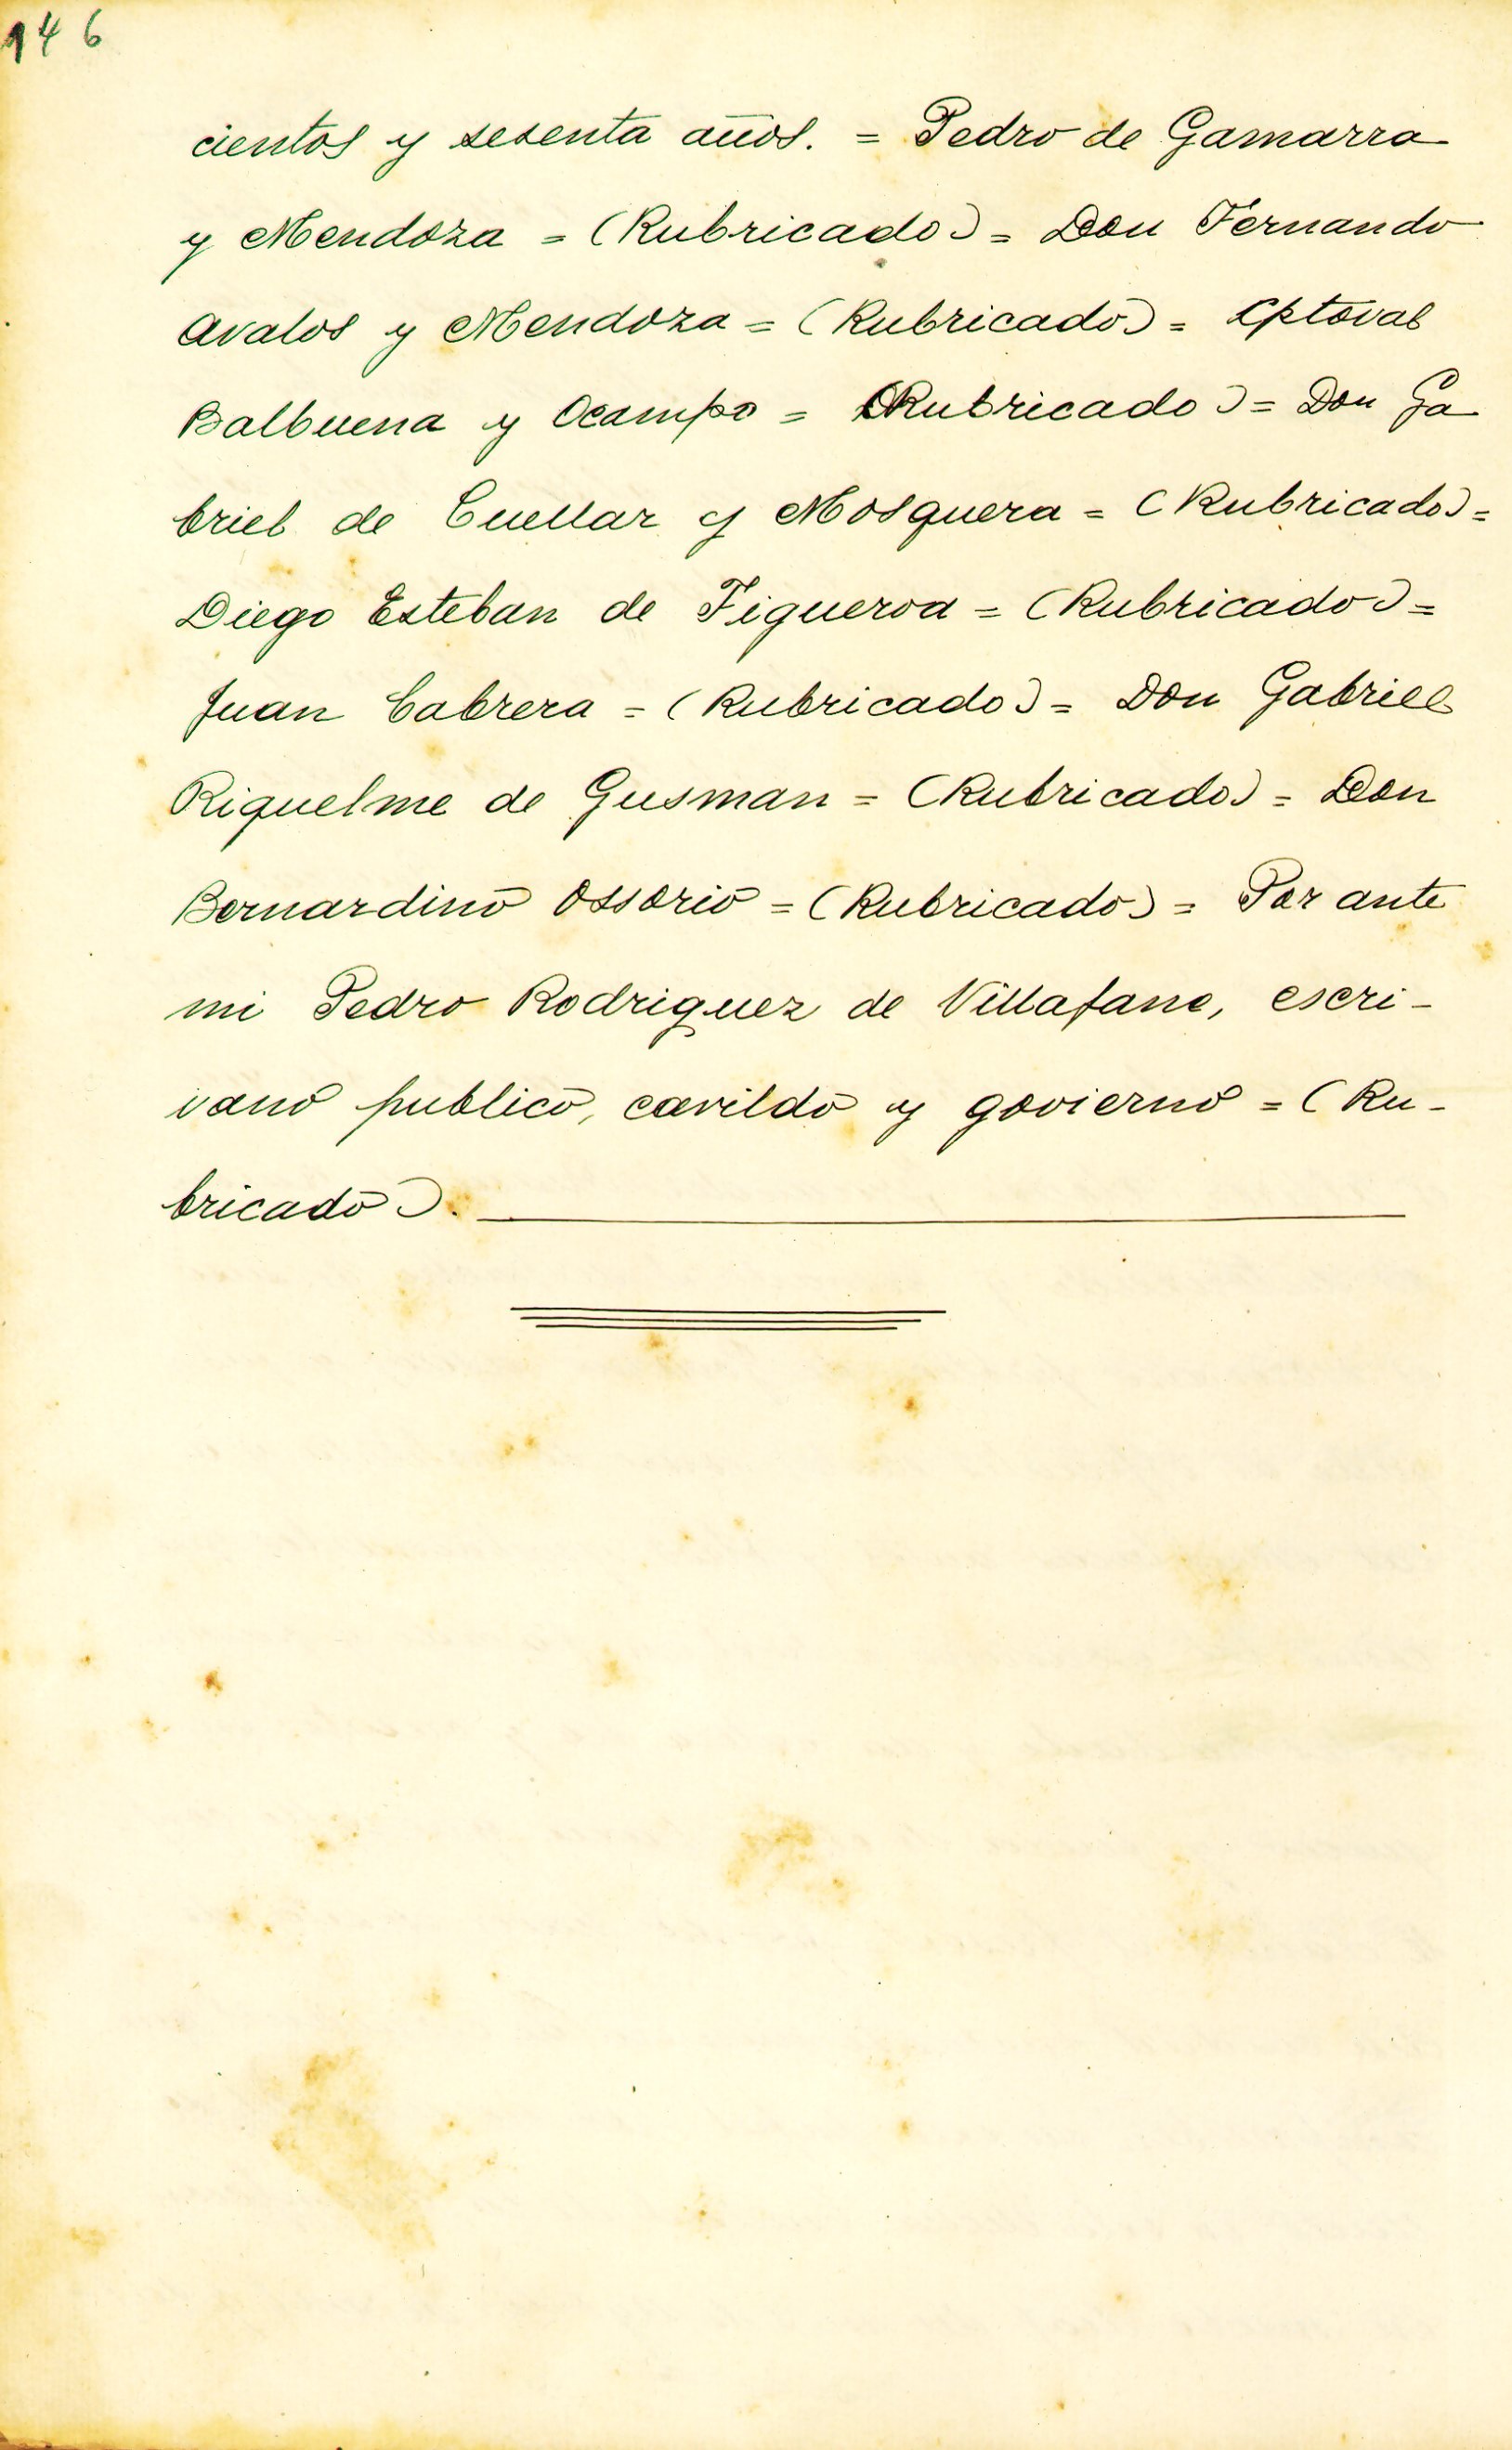 146
cientos y sesenta años. = Pedro de Gamarra
y Mendoza = (Rubricado) = Don Fernando
Avalos y Mendoza = (Rubricado) = Xptoval
Balbuena y Ocampo = (Rubricado) = Don Ga
briel de Cuellar y Mosquera = (Rubricado) =
Diego Esteban de Figueroa = (Rubricado) =
Juan Cabrera = (Rubricado) = Don Gabriel
Riquelme de Gusman = (Rubricado) = Don
Bernardino Ossorio = (Rubricado) = Por ante
mi Pedro Rodriguez de Villafane, escri-
vano publico, cavildo y govierno = (Ru-
bricado).